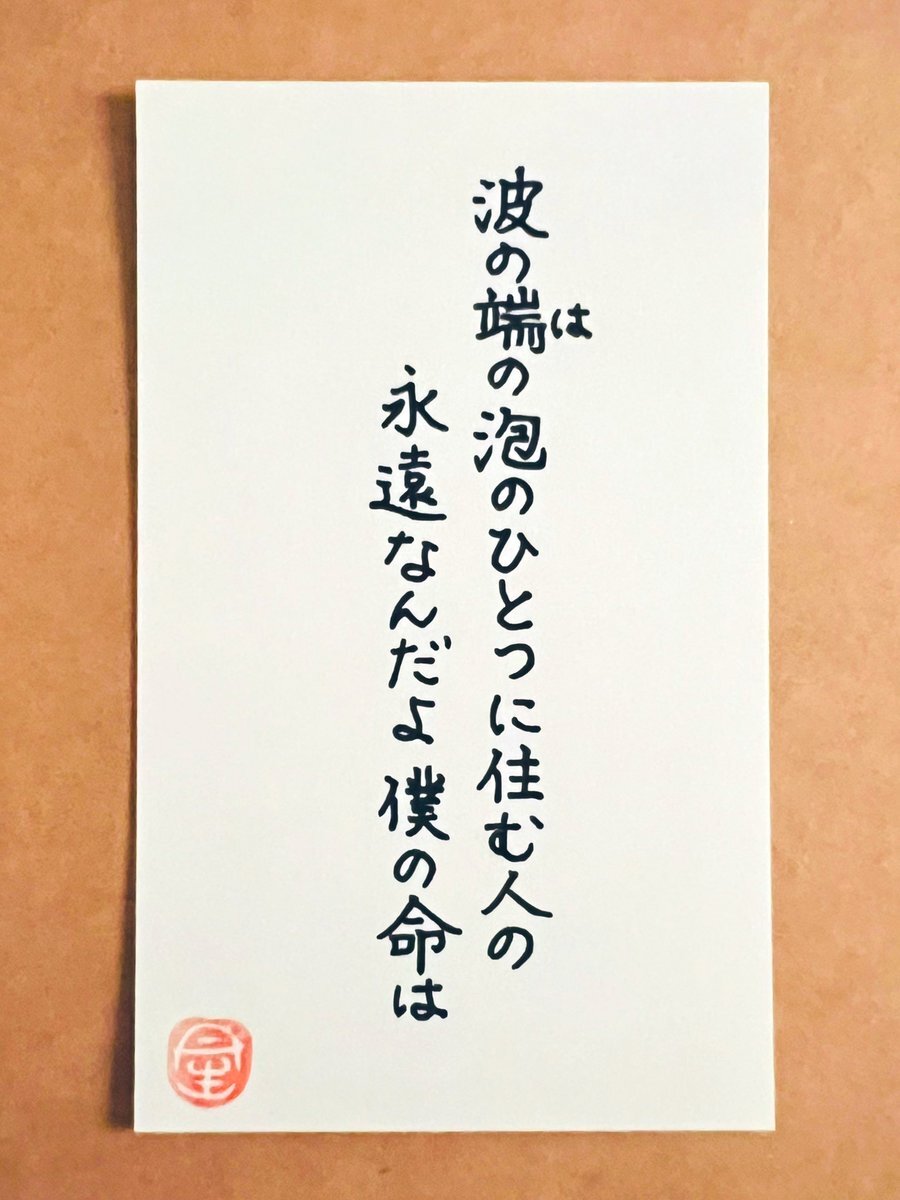 波の端の泡のひとつに住む人の
は
永遠なんだよ 僕の命は